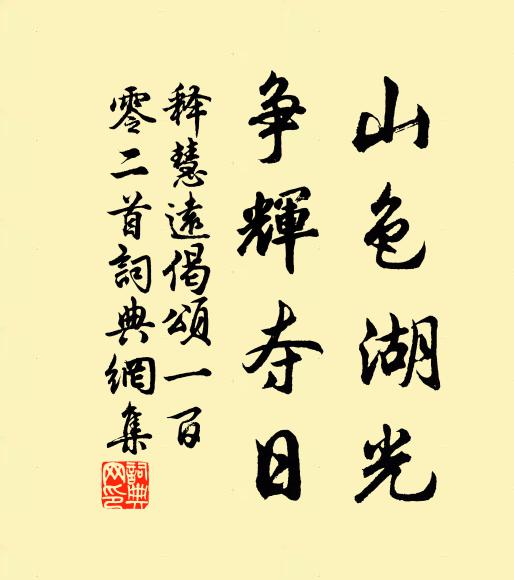 山色湖光
争輝夺日
释慧遠偈頌一百
零二首詞典網集
詞典网印